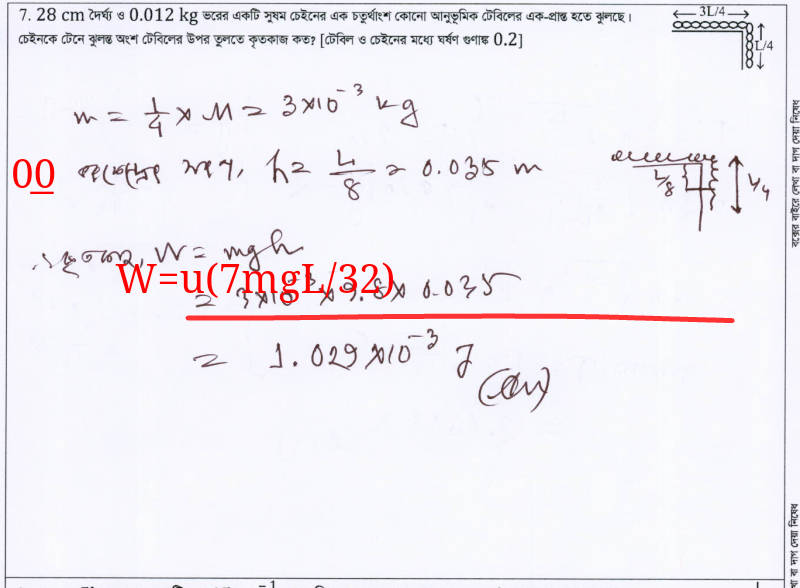 7. 28 cm দৈর্ঘ্য ও 0.012 kg ভরের একটি সুষম চেইনের এক চতুর্থাংশ কোনো আনুভূমিক টেবিলের এক-প্রান্ত হতে ঝুলছে।
চেইনকে টেনে ঝুলন্ত অংশ টেবিলের উপর তুলতে কৃতকাজ কত? [টেবিল ও চেইনের মধ্যে ঘর্ষণ গুণাঙ্ক 0.2]
3L/4
L/4
m = 1/4 × M = 3×10⁻³ kg
00
সরণ, h = L/8 = 0.035 m
L/8
L/4
W = mgh
W=u(7mgL/32)
= 3×10⁻³ × 9.8 × 0.035
= 1.029 ×10⁻³ J
(Ans)
বক্সের বাইরে লেখা বা দাগ দেয়া নিষেধ
বা দাগ দেয়া নিষেধ